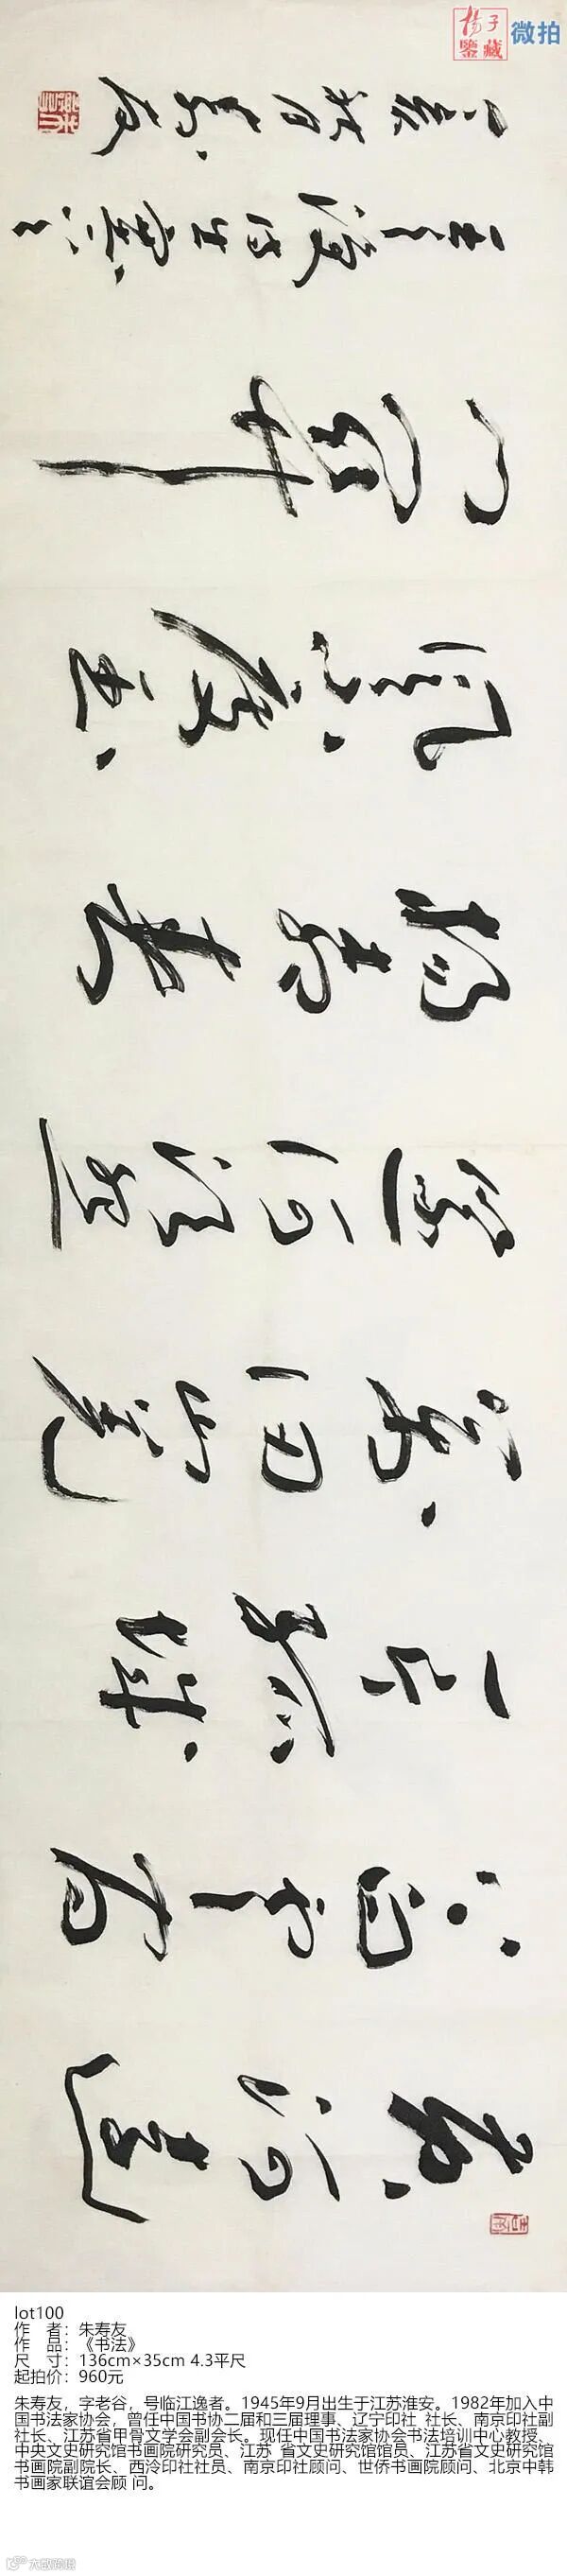 杨子
鉴藏
微拍
黄河远
上白云间
一片孤城
万仞山羌
笛何须怨
杨柳春
风不度玉
门关
寿友
lot100
作 者：朱寿友
作 品：《书法》
尺 寸：136cm×35cm 4.3平尺
起拍价：960元
朱寿友，字老谷，号临江逸者。1945年9月出生于江苏淮安。1982年加入中
国书法家协会，曾任中国书协二届和三届理事、辽宁印社 社长、南京印社副
社长、江苏省甲骨文学会副会长。现任中国书法家协会书法培训中心教授、
中央文史研究馆书画院研究员、江苏 省文史研究馆馆员、江苏省文史研究馆
书画院副院长、西泠印社社员、南京印社顾问、世侨书画院顾问、北京中韩
书画家联谊会顾 问。